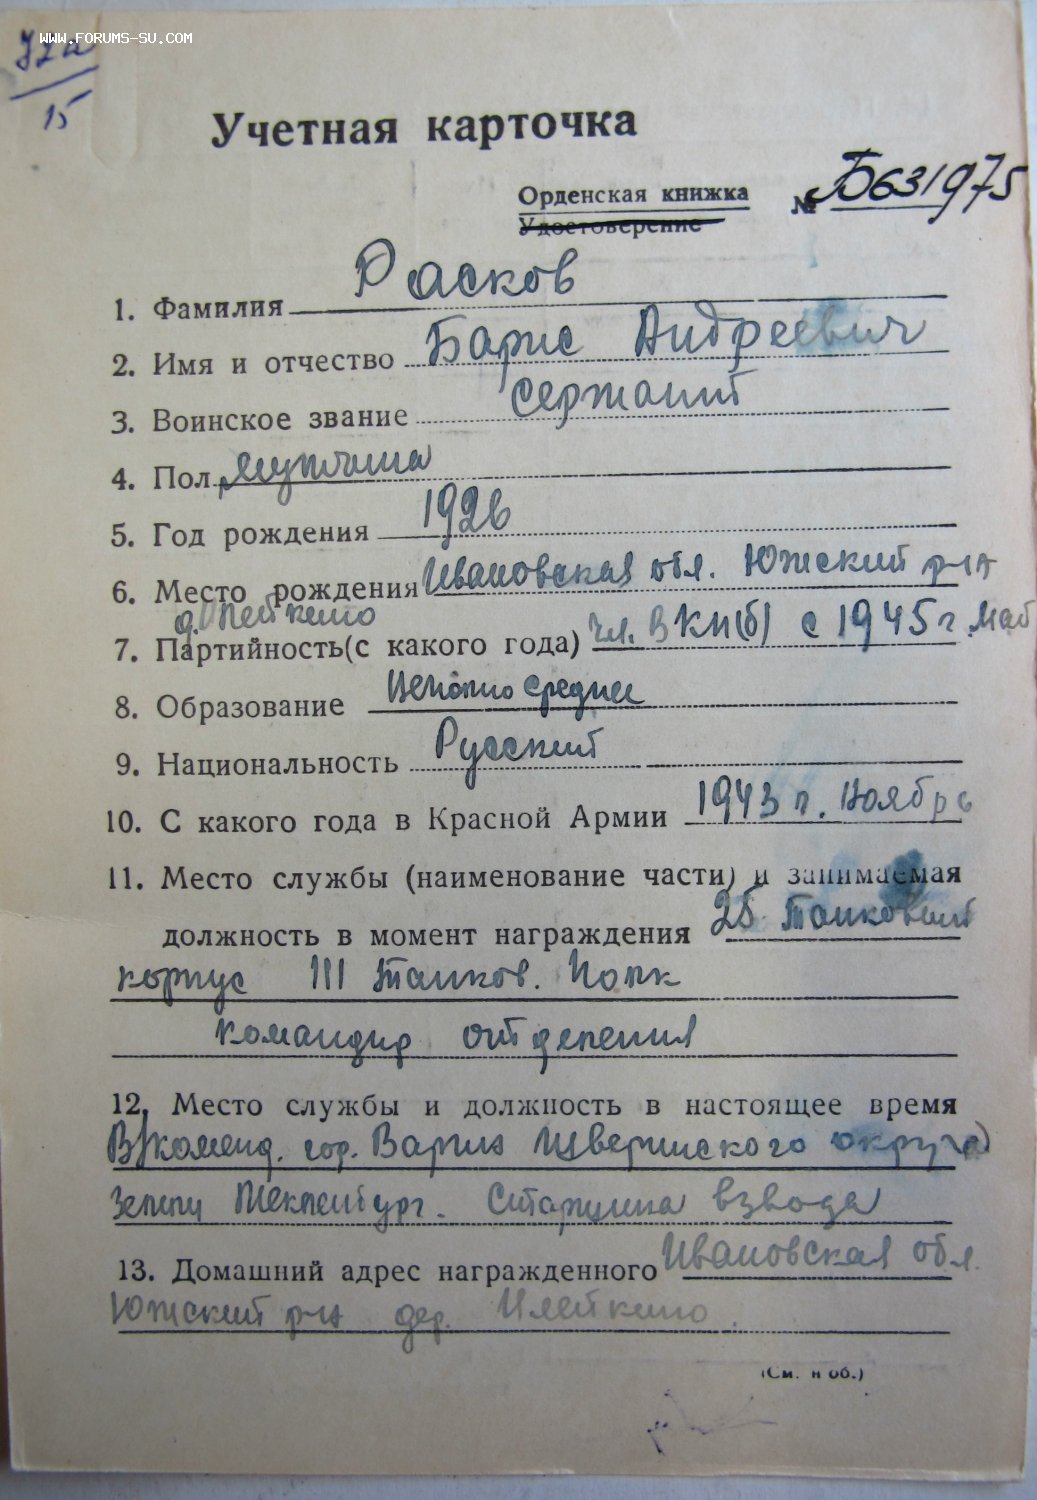 www.forums-su.com
15
Учетная карточка
Орденская книжка № Б631975
Удостоверение
1. Фамилия Расков
2. Имя и отчество Барис Андреевич
3. Воинское звание сержант
4. Пол мужчина
5. Год рождения 1926
6. Место рождения Ивановская обл. Южский р-н
д. Илейкино
7. Партийность(с какого года) чл. ВКП(б) с 1945 г. май
8. Образование Неполно среднее
9. Национальность Русский
10. С какого года в Красной Армии 1943 г. Ноябрь
11. Место службы (наименование части) и занимаемая
должность в момент награждения 25 Танковый
корпус III Танков. Полк
командир отделения
12. Место службы и должность в настоящее время
В/Коменд. гор. Варин Шверинского округа
Земли Мекленбург. Старшина взвода
13. Домашний адрес награжденного Ивановская обл.
Южский р-н дер. Илейкино.
(См. н об.)